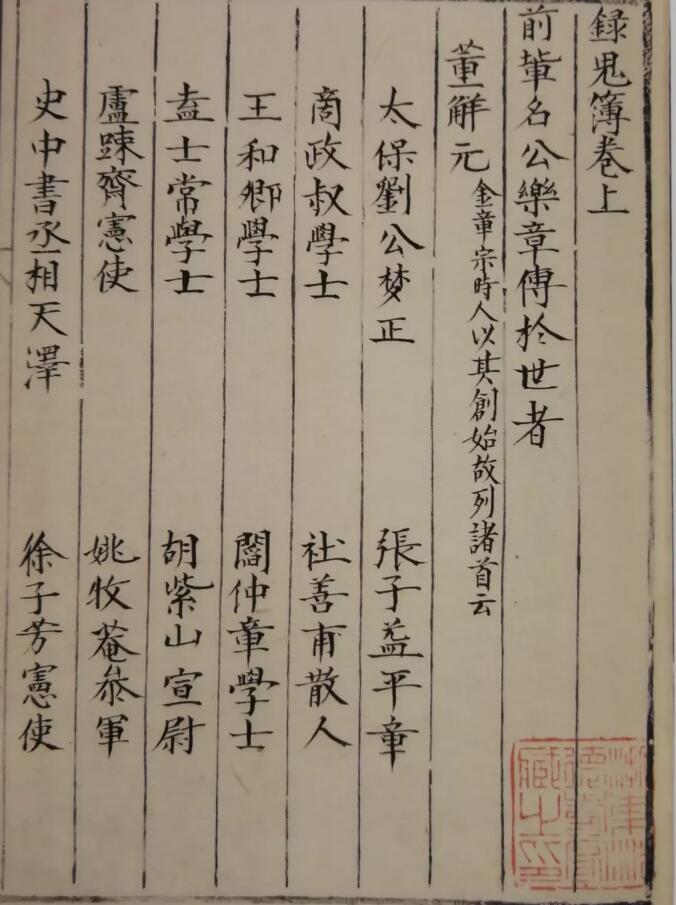 録鬼簿卷上
前輩名公樂章傳於世者
董解元 金章宗時人以其創始故列諸首云
太保劉公梦正 張子益平章
商政叔學士 社善甫散人
王和卿學士 閻仲章學士
盍士常學士 胡紫山宣尉
盧踈齋憲使 姚牧菴叅軍
史中書丞相天澤 徐子芳憲使